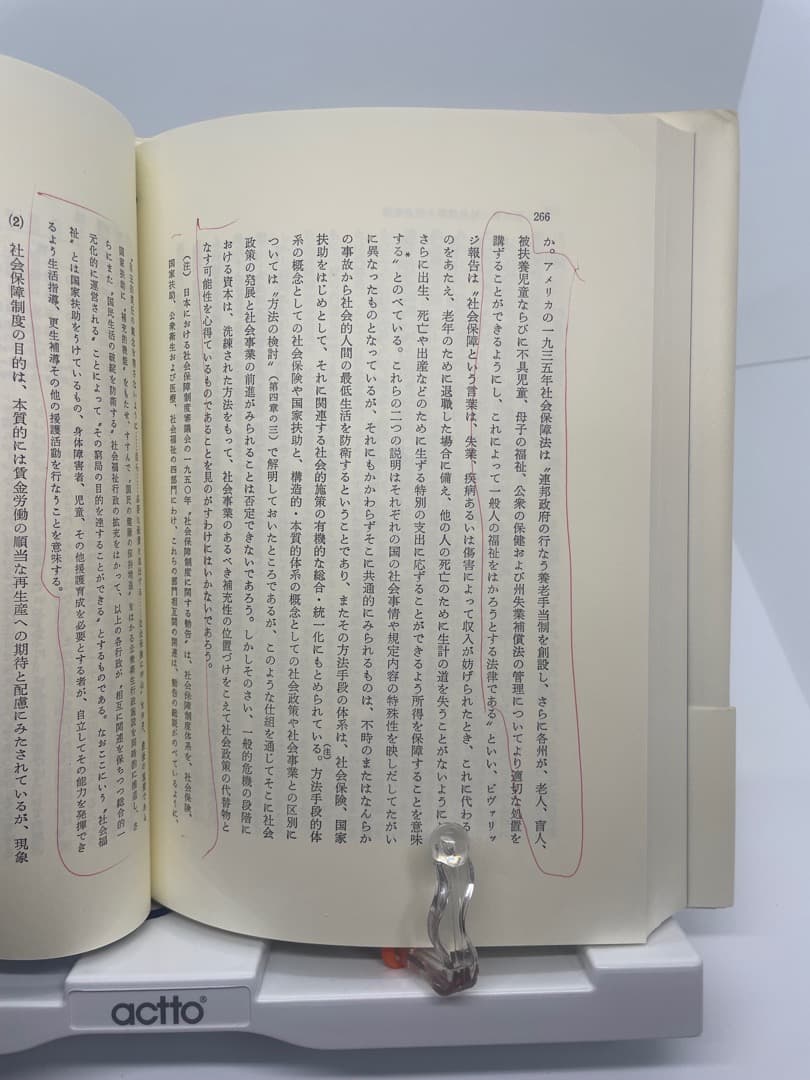 266
か。アメリカの一九三五年社会保障法は〝連邦政府の行なう養老手当制を創設し、さらに各州が、老人、盲人、
被扶養児童ならびに不具児童、母子の福祉、公衆の保健および州失業補償法の管理についてより適切な処置を
講ずることができるようにし、これによって一般人の福祉をはかろうとする法律である〟といい、ビヴァリッ
ジ報告は〝社会保障という言葉は、失業、疾病あるいは傷害によって収入が妨げられたとき、これに代わる
のをあたえ、老年のために退職した場合に備え、他の人の死亡のために生計の道を失うことがないように
さらに出生、死亡や出産などのために生ずる特別の支出に応ずることができるよう所得を保障することを意味
する〟とのべている。これらの二つの説明はそれぞれの国の社会事情や規定内容の特殊性を映しだしてたがい
に異なったものとなっているが、それにもかかわらずそこに共通的にみられるものは、不時のまたはなんらか
の事故から社会的人間の最低生活を防衛するということであり、またその方法手段の体系は、社会保険、国家
扶助をはじめとして、それに関連する社会的施策の有機的な総合・統一化にもとめられている。(注)方法手段的体
系の概念としての社会保険や国家扶助と、構造的・本質的体系の概念としての社会政策や社会事業との区別に
ついては〝方法の検討〟(第四章の三)で解明しておいたところであるが、このような仕組を通じてそこに社会
政策の発展と社会事業の前進がみられることは否定できないであろう。しかしそのさい、一般的危機の段階に
おける資本は、洗練された方法をもって、社会事業のあるべき補充性の位置づけをこえて社会政策の代替物と
なす可能性を心得ているものであることを見のがすわけにはいかないであろう。
(注) 日本における社会保障制度審議会の一九五〇年〝社会保障制度に関する勧告〟は、社会保障制度体系を、社会保険、
国家扶助、公衆衛生および医療、社会福祉の四部門にわけ、これらの部門相互間の関連は、勧告の総説がのべているように、
国家扶助に〝補充的機能〟をもたせ、すすんで〝国民の健康の保持増進〟をはかる公衆衛生行政施設を同時的に推進し、さ
らにまた〝国民生活の破綻を防衛する〟社会福祉行政の拡充をはかって、以上の各行政が〝相互に関連を保ちつつ総合的一
元化的に運営される〟ことによって〝その窮局の目的を達することができる〟とするものである。なおここにいう〝社会福
祉〟とは国家扶助をうけているもの、身体障害者、児童、その他援護育成を必要とする者が、自立してその能力を発揮でき
るよう生活指導、更生補導その他の援護活動を行なうことを意味する。
(2) 社会保障制度の目的は、本質的には賃金労働の順当な再生産への期待と配慮にみたされているが、現象
actto®